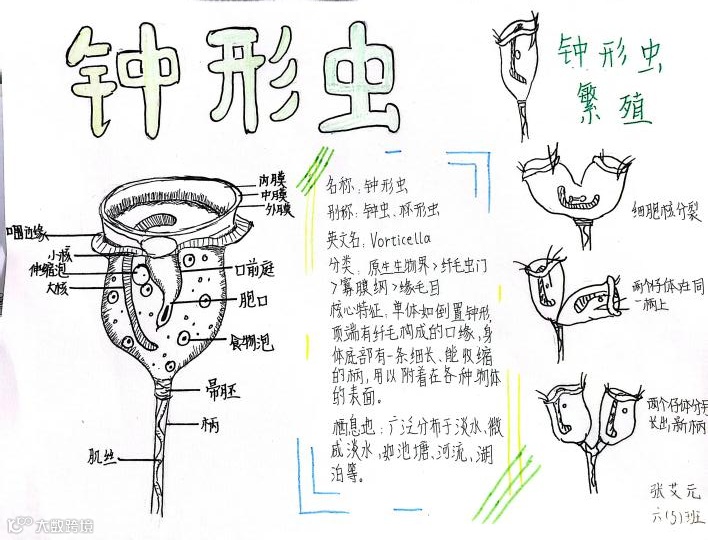 钟形虫
内膜
中膜
外膜
口围边缘
小核
伸缩泡
大核
口前庭
胞口
食物泡
帚胚
柄
肌丝
名称：钟形虫
别称：钟虫、杯形虫
英文名：Vorticella
分类：原生生物界>纤毛虫门
>寡膜纲>缘毛目
核心特征：单体如倒置钟形，
顶端有纤毛构成的口缘，身
体底部有一条细长、能收缩
的柄，用以附着在各种物体
的表面。
栖息地：广泛分布于淡水、微
咸淡水，如池塘、河流、湖
泊等。
钟形虫
繁殖
细胞核分裂
两个仔体在同
一柄上
两个仔体分另
长出新柄
张艾元
六(5)班
大数跨境